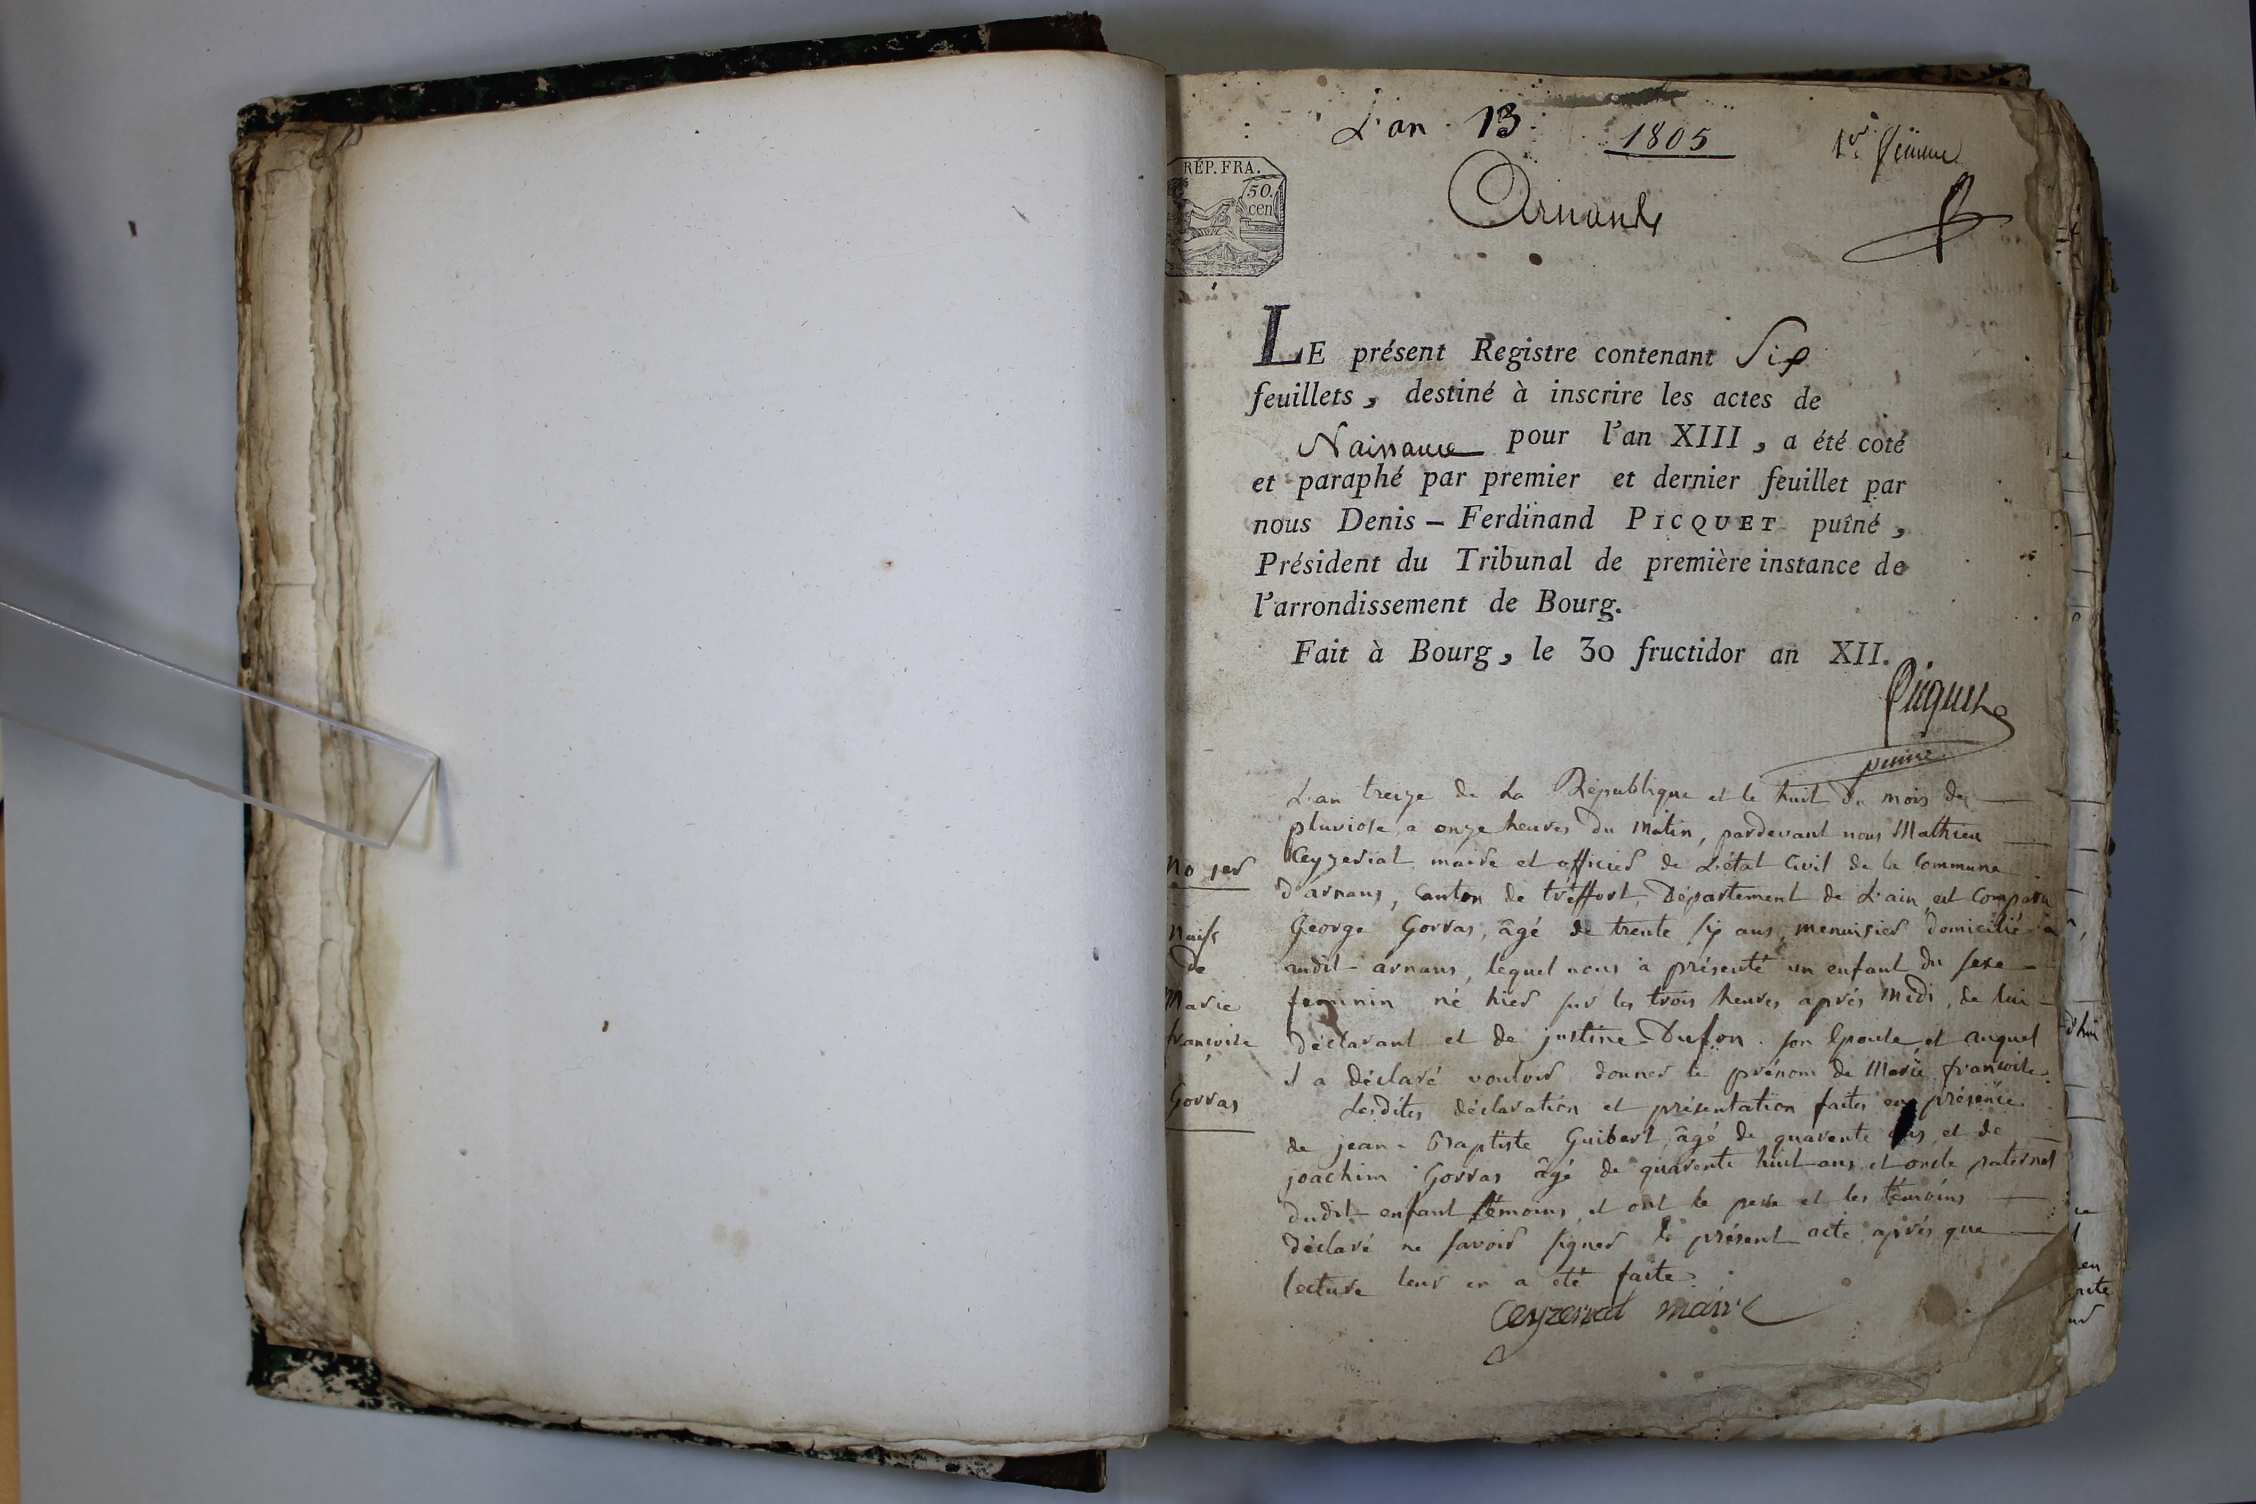 L'an 13
1805
1er
Arnans
RÉP. FRA.
50.
cen
LE présent Registre contenant Six
feuillets, destiné à inscrire les actes de
Naissance pour l'an XIII, a été coté
et paraphé par premier et dernier feuillet par
nous Denis-Ferdinand PICQUET puîné,
Président du Tribunal de première instance de
l'arrondissement de Bourg.
Fait à Bourg, le 30 fructidor an XII.
Picquet
puiné
L'an treize de La République et le huit du mois de
pluviose, a onze heures du matin, pardevant nous Mathieu
Ceyzeriat maire et officier de L'état Civil de la Commune
d'arnans, canton de tréffort, Département de L'ain, est comparu
George Gorras, âgé de trente six ans, menuisier domicilié a
audit arnans, lequel nous a présenté un enfant du sexe
feminin né hier sur les trois heures aprés midi, de lui
déclarant et de justine Dufon son Epouse, et auquel
il a déclaré vouloir donner le prénom de Marie françoise.
Lesdites déclaration et présentation faites en présence
de jean-Baptiste Guibert, âgé de quarente ans, et de
joachim Gorras âgé de quarente huit ans, et oncle paternel
dudit enfant témoins, et ont le pere et les témoins
déclaré ne savoir signer le présent acte, aprés que
lecture leur en a été faite.
Ceyzeriat maire
No 1er
Naiss
de
Marie
françoise
Gorras